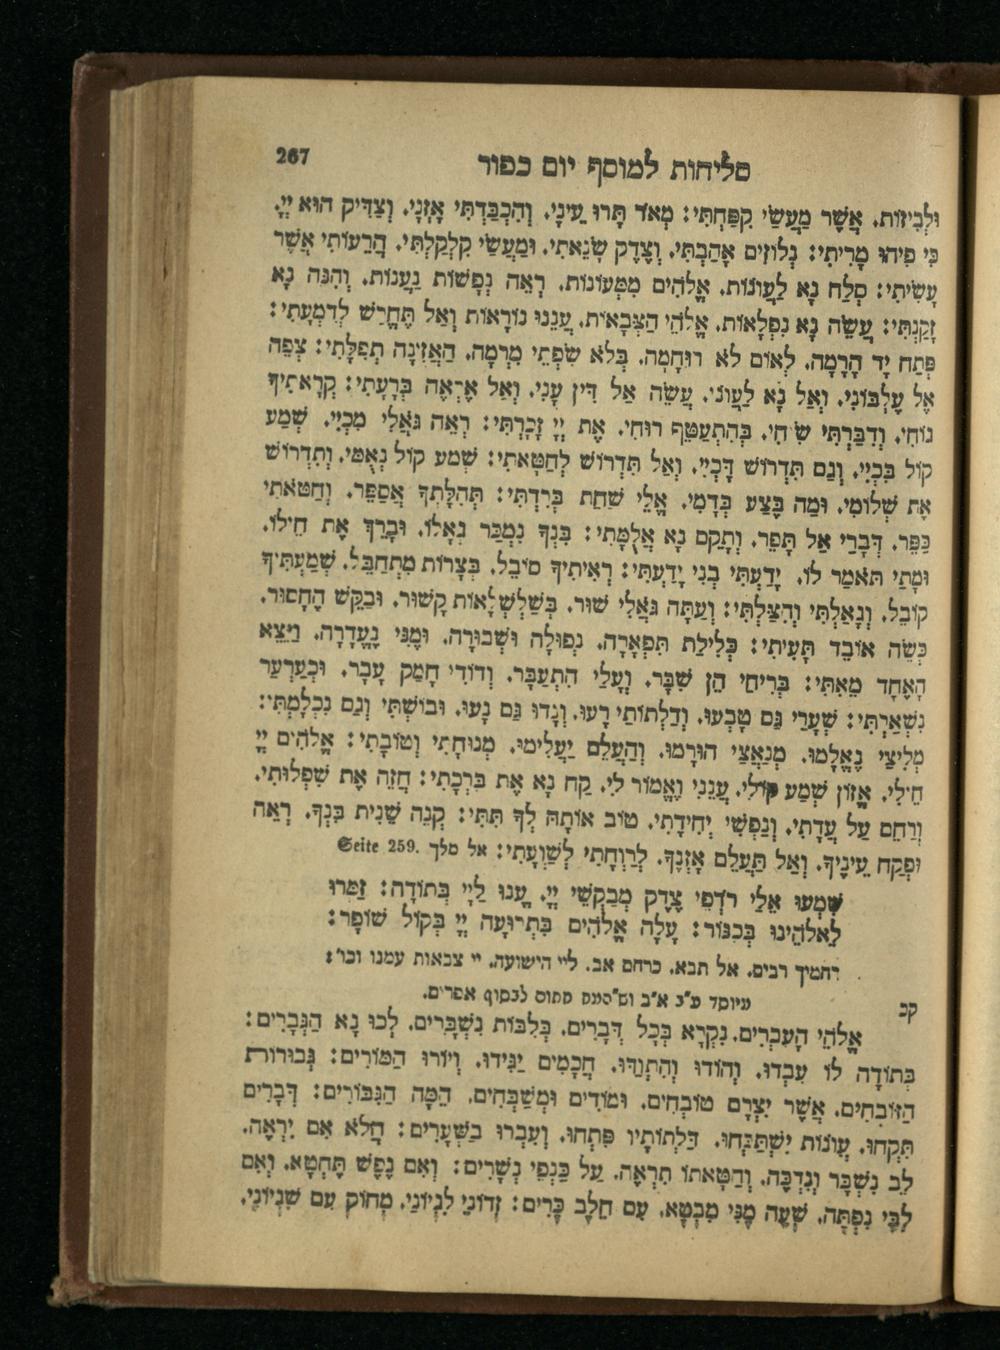 סליחות למוסף יום כפור 267
וּלְבִיזוֹת. אֲשֶׁר מַעֲשַׂי קִפַּחְתִּי: מְאֹד תָּרוּ עֵינָי. וְהִכְבַּדְתִּי אָזְנָי. וְצַדִּיק הוּא יְיָ.
כִּי פִיהוּ מָרִיתִי: נְלוֹזִים אָהַבְתִּי. וְצֶדֶק שָׂנֵאתִי. וּמַעֲשַׂי קִלְקַלְתִּי. הֲרֵעוֹתִי אֲשֶׁר
עָשִׂיתִי: סְלַח נָא לַעֲוֹנוֹת. אֱלֹהִים מִמְּעוֹנוֹת. רְאֵה נְפָשׁוֹת נַעֲנוֹת. וְהִנֵּה נָא
זָקַנְתִּי: עֲשֵׂה נָא נִפְלָאוֹת. אֱלֹהֵי הַצְּבָאוֹת. עֲנֵנוּ נוֹרָאוֹת וְאַל תֶּחֱרַשׁ לְדִמְעָתִי:
פְּתַח יָד הָרָמָה. לְאוֹם לֹא רוּחָמָה. בְּלֹא שִׂפְתֵי מִרְמָה. הַאֲזִינָה תְפִלָּתִי: צְפֵה
אֶל עֶלְבּוֹנִי. וְאַל נָא לַעֲוֹנִי. עֲשֵׂה אַל דִּין עָנִי. וְאַל אֶרְאֶה בְּרָעָתִי: קְרָאתִיךָ
נוֹחִי. וְדִבַּרְתִּי שִׂחִי. בְּהִתְעַטֵּף רוּחִי. אֶת יְיָ זָכָרְתִּי: רְאֵה גּוֹאֲלִי מִכְיִי. שְׁמַע
קוֹל בִּכְיִי. וְגַם תִּדְרוֹשׁ דָּכְיִי. וְאַל תִּדְרוֹשׁ לְחַטָּאתִי: שְׁמַע קוֹל נְאֻמִי. וְתִדְרוֹשׁ
אֶת שְׁלוֹמִי. וּמַה בֶּצַע בְּדָמִי. אֱלֵי שַׁחַת בְּרִדְתִּי: תְּהִלָּתְךָ אֲסַפֵּר. וְחַטֹּאתִי
כַּפֵּר. דְּבָרַי אַל תָּפֵר. וְתָקֵם נָא אֲלֻמָּתִי: בִּנְךָ נִמְכַּר גְּאָלוֹ. וּבָרֵךְ אֶת חֵילוֹ.
וּמָתַי תֹּאמַר לוֹ. יָדַעְתִּי בְנִי יָדַעְתִּי: רְאִיתִיךָ סוֹבֵל. בְּצָרוֹת מִתְחַבֵּל. שְׁמַעְתִּיךָ
קוֹבֵל. וְגָאַלְתִּי וְהִצַּלְתִּי: וְעַתָּה גּוֹאֲלִי שׁוּר. בְּשַׁלְשְׁלָאוֹת קָשׁוּר. וּבַקֵּשׁ הֶחָסוּר.
כְּשֶׂה אוֹבֵד תָּעִיתִי: כְּלִילַת תִּפְאָרָה. נְפוּלָה וּשְׁבוּרָה. וּמֶנִּי נֶעְדָּרָה. וַיֵּצֵא
הָאֶחָד מֵאִתִּי: בְּרִיחַי הֵן שִׁבָּר. וְעָלַי הִתְעַבָּר. וְדוֹדִי חָמַק עָבָר. וּכְעַרְעַר
נִשְׁאַרְתִּי: שְׁעָרַי גַּם טָבְעוּ. וְדַלְתוֹתַי רָעוּ. וְנָדוּ גַּם נָעוּ. וּבוֹשְׁתִּי וְגַם נִכְלָמְתִּי:
מְלִיצַי נֶאֱלָמוּ. מְנַאֲצַי הוּרָמוּ. וְהַעֲלֵם יַעֲלִימוּ. מְנוּחָתִי וְטוֹבָתִי: אֱלֹהִים יְיָ
חֵילִי. אֱזוֹן שְׁמַע קוֹלִי. עֲנֵנִי וֶאֱמוֹר לִי. קַח נָא אֶת בִּרְכָתִי: חֲזֵה אֶת שִׁפְלוּתִי.
וְרַחֵם עַל עֲדָתִי. וְנַפְשִׁי יְחִידָתִי. טוֹב אוֹתָהּ לְךָ תִּתִּי: קְנֵה שֵׁנִית בִּנְךָ. רְאֵה
וּפְקַח עֵינֶיךָ. וְאַל תַּעְלֵם אָזְנֶךָ. לְרַוְחָתִי לְשַׁוְעָתִי: אל מלך Seite 259.
שִׁמְעוּ אֵלַי רֹדְפֵי צֶדֶק מְבַקְשֵׁי יְיָ. עֱנוּ לַיְיָ בְּתוֹדָה: זַמְּרוּ
לֵאלֹהֵינוּ בְכִנּוֹר: עָלָה אֱלֹהִים בִּתְרוּעָה יְיָ בְּקוֹל שׁוֹפָר:
רחמיך רבים. אל תבא. כרחם אב. ליי הישועה. יי צבאות עמנו וכו׳:
קב מיוסד ע״פ א״ב וש״המס חתום לבסוף אפרים.
אֱלֹהֵי הָעִבְרִים. נִקְרָא בְּכָל דְּבָרִים. בְּלִבּוֹת נִשְׁבָּרִים. לְכוּ נָא הַגְּבָרִים:
בְּתוֹדָה לוֹ עִבְדוּ. וְהוֹדוּ וְהִתְוַדּוּ. חֲכָמִים יַגִּידוּ. וְיוֹרוּ הַמּוֹרִים: גְּבוּרוֹת
הַזּוֹבְחִים. אֲשֶׁר יִצְרָם טוֹבְחִים. וּמוֹדִים וּמְשַׁבְּחִים. הֵמָּה הַגִּבּוֹרִים: דְּבָרִים
תִּקְחוּ. עֲוֹנוֹת יִשְׁתַּכְּחוּ. דַּלְתוֹתָיו פִּתְחוּ. וְעִבְרוּ בַשְּׁעָרִים: הֲלֹא אִם יִרְאֶה.
לֵב נִשְׁבָּר וְנִדְכֶּה. וְהַטָּאתוֹ תִרְאֶה. עַל כַּנְפֵי נְשָׁרִים: וְאִם נֶפֶשׁ תֶּחֱטָא. וְאִם
לִבִּי נִפְתָּה. שְׁעֵה מֶנִּי מִבְטָא. עִם חֵלֶב כָּרִים: זְדוֹנַי לִגְיוֹנַי. מְחוֹק עִם שִׁגְיוֹנַי.